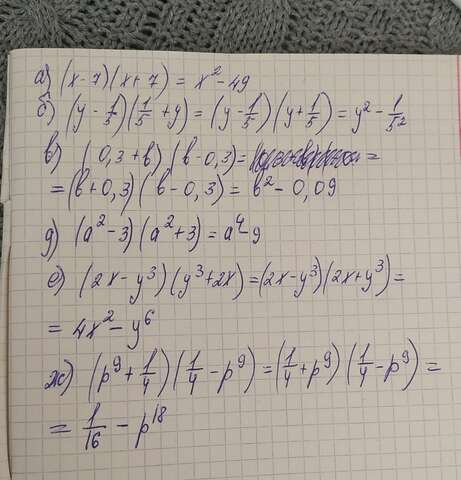 а) (x-7)(x+7) = x²-49
б) (y - 1/5)(1/5 + y) = (y - 1/5)(y + 1/5) = y² - 1/5²
в) (0,3+в)(в-0,3) = =
= (в+0,3)(в-0,3) = в² - 0,09
д) (a²-3)(a²+3) = a⁴-9
е) (2x-y³)(y³+2x) = (2x-y³)(2x+y³) =
= 4x² - y⁶
ж) (p⁹ + 1/4)(1/4 - p⁹) = (1/4 + p⁹)(1/4 - p⁹) =
= 1/16 - p¹⁸